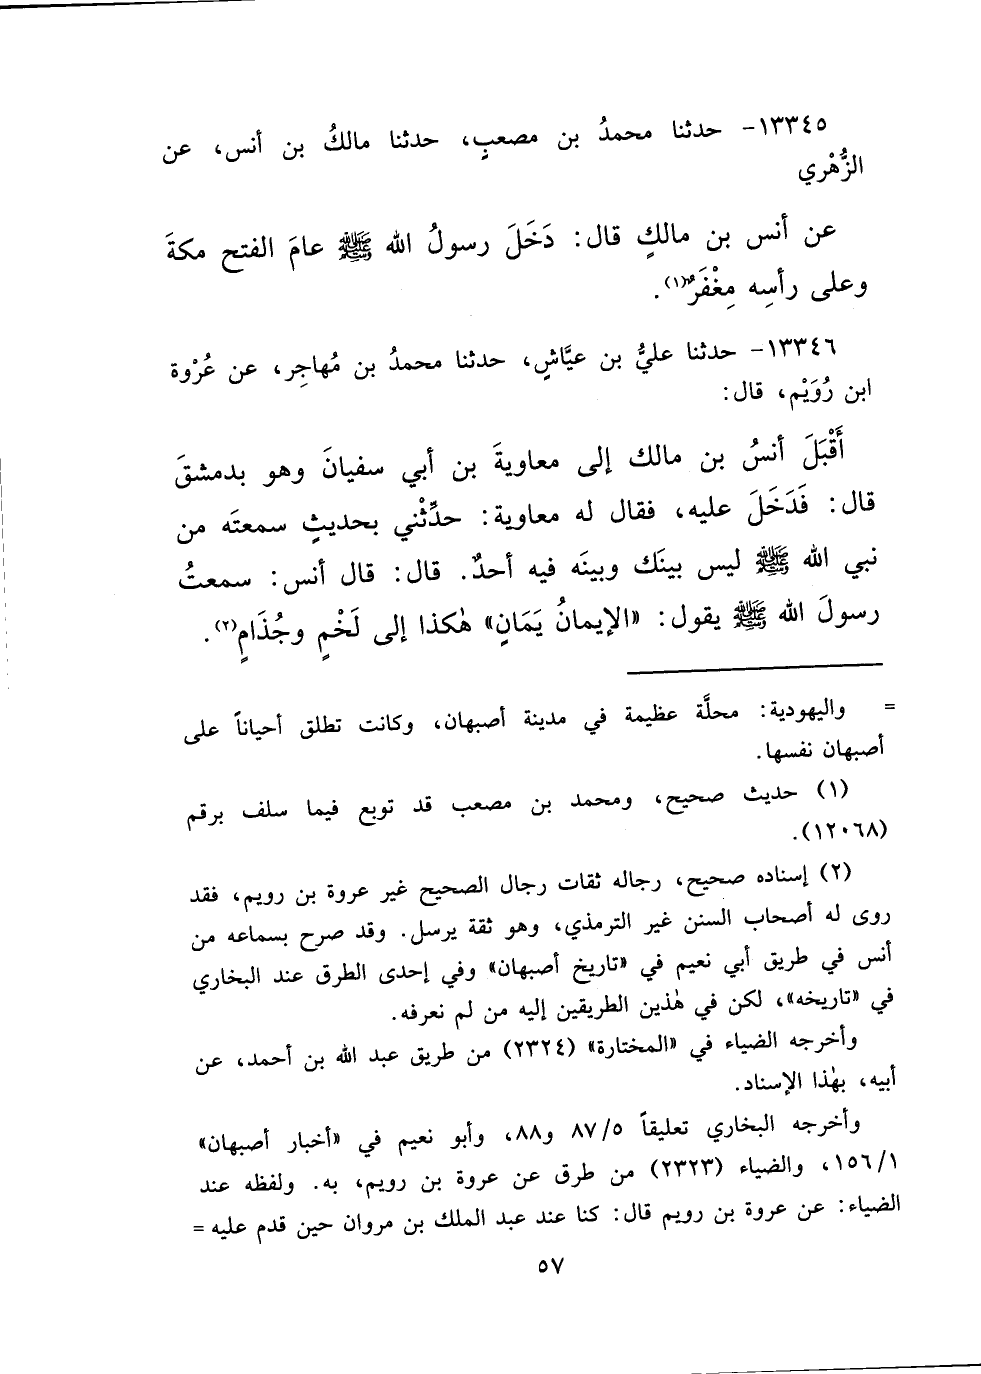 ١٣٣٤٥- حدثنا محمدُ بن مصعبٍ، حدثنا مالكُ بن أنس، عن
الزُّهْري
عن أنس بن مالكٍ قال: دَخَلَ رسولُ الله ﷺ عامَ الفتح مكةَ
وعلى رأسِه مِغْفَرٌ(١).
١٣٣٤٦- حدثنا عليُّ بن عيَّاشٍ، حدثنا محمدُ بن مُهاجِر، عن عُرْوة
ابن رُوَيْم، قال:
أَقْبَلَ أنسُ بن مالك إلى معاويةَ بن أبي سفيانَ وهو بدمشقَ
قال: فَدَخَلَ عليه، فقال له معاوية: حدِّثْني بحديثٍ سمعتَه من
نبي الله ﷺ ليس بينَك وبينَه فيه أحدٌ. قال: قال أنس: سمعتُ
رسولَ الله ﷺ يقول: «الإيمانُ يَمَانٍ» هٰكذا إلى لَخْمٍ وجُذَامٍ(٢).
= واليهودية: محلَّة عظيمة في مدينة أصبهان، وكانت تطلق أحياناً على
أصبهان نفسها.
(١) حديث صحيح، ومحمد بن مصعب قد توبع فيما سلف برقم
(١٢٠٦٨).
(٢) إسناده صحيح، رجاله ثقات رجال الصحيح غير عروة بن رويم، فقد
روى له أصحاب السنن غير الترمذي، وهو ثقة يرسل. وقد صرح بسماعه من
أنس في طريق أبي نعيم في «تاريخ أصبهان» وفي إحدى الطرق عند البخاري
في «تاريخه»، لكن في هٰذين الطريقين إليه من لم نعرفه.
وأخرجه الضياء في «المختارة» (٢٣٢٤) من طريق عبد الله بن أحمد، عن
أبيه، بهٰذا الإسناد.
وأخرجه البخاري تعليقاً ٨٧/٥ و٨٨، وأبو نعيم في «أخبار أصبهان»
١٥٦/١، والضياء (٢٣٢٣) من طرق عن عروة بن رويم، به. ولفظه عند
الضياء: عن عروة بن رويم قال: كنا عند عبد الملك بن مروان حين قدم عليه =
٥٧